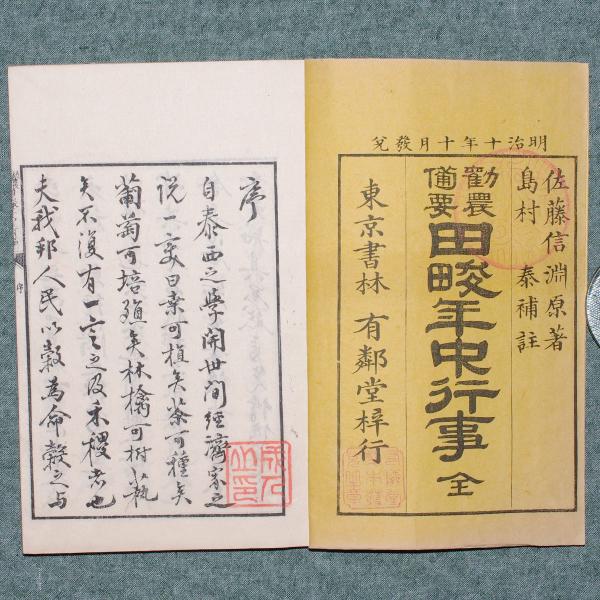 明治十年十月發兌
佐藤信淵原著
島村 泰補註
勸農備要
田畯年中行事 全
東京書林 有鄰堂梓行
序
自泰西之學開世間經濟家之
説一変曰桑可植矣茶可種矣
葡萄可培殖矣林檎可樹藝
矣不復有一言之及禾稷者也
夫我邦人民以穀為命穀之与